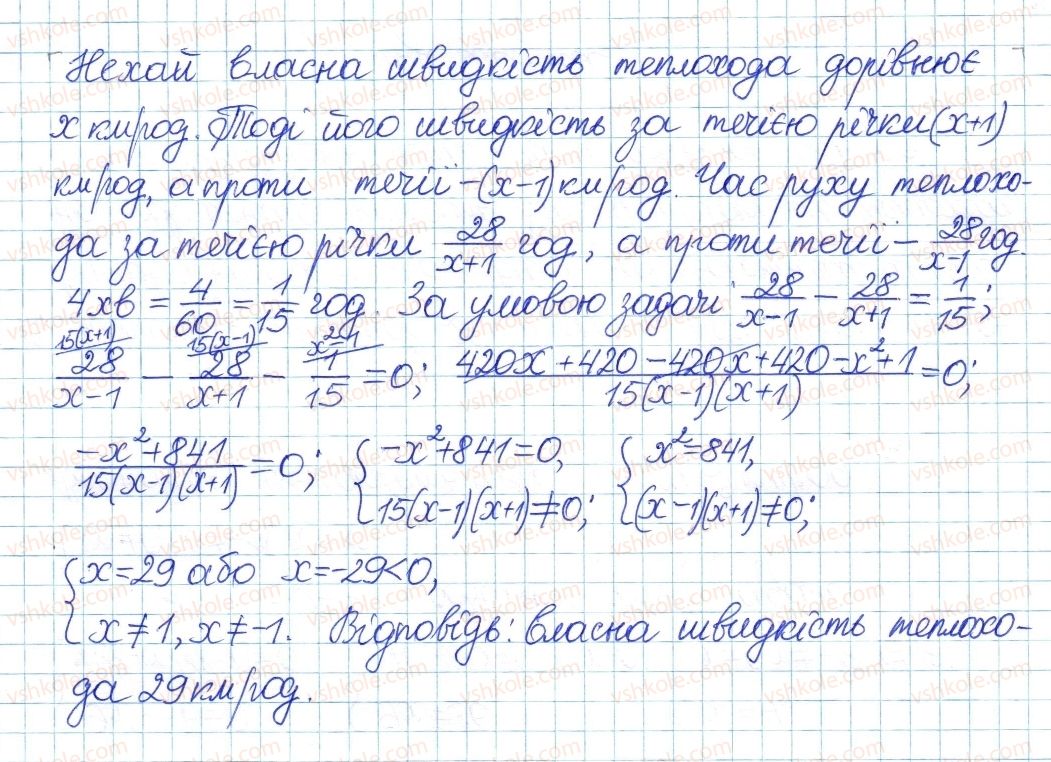 Нехай власна швидкість теплохода дорівнює
x км/год. Тоді його швидкість за течією річки (x+1)
км/год, а проти течії – (x-1) км/год. Час руху теплохо-
да за течією річки 28/(x+1) год, а проти течії – 28/(x-1) год.
4 хв = 4/60 = 1/15 год. За умовою задачі 28/(x-1) - 28/(x+1) = 1/15;
15(x+1) 15(x-1) x²-1
28/(x-1) - 28/(x+1) - 1/15 = 0; (420x + 420 - 420x + 420 - x² + 1)/(15(x-1)(x+1)) = 0;
(-x² + 841)/(15(x-1)(x+1)) = 0; { -x² + 841 = 0, { x² = 841,
15(x-1)(x+1) ≠ 0; (x-1)(x+1) ≠ 0;
{ x = 29 або x = -29 < 0,
x ≠ 1, x ≠ -1. Відповідь: власна швидкість теплохо-
да 29 км/год.